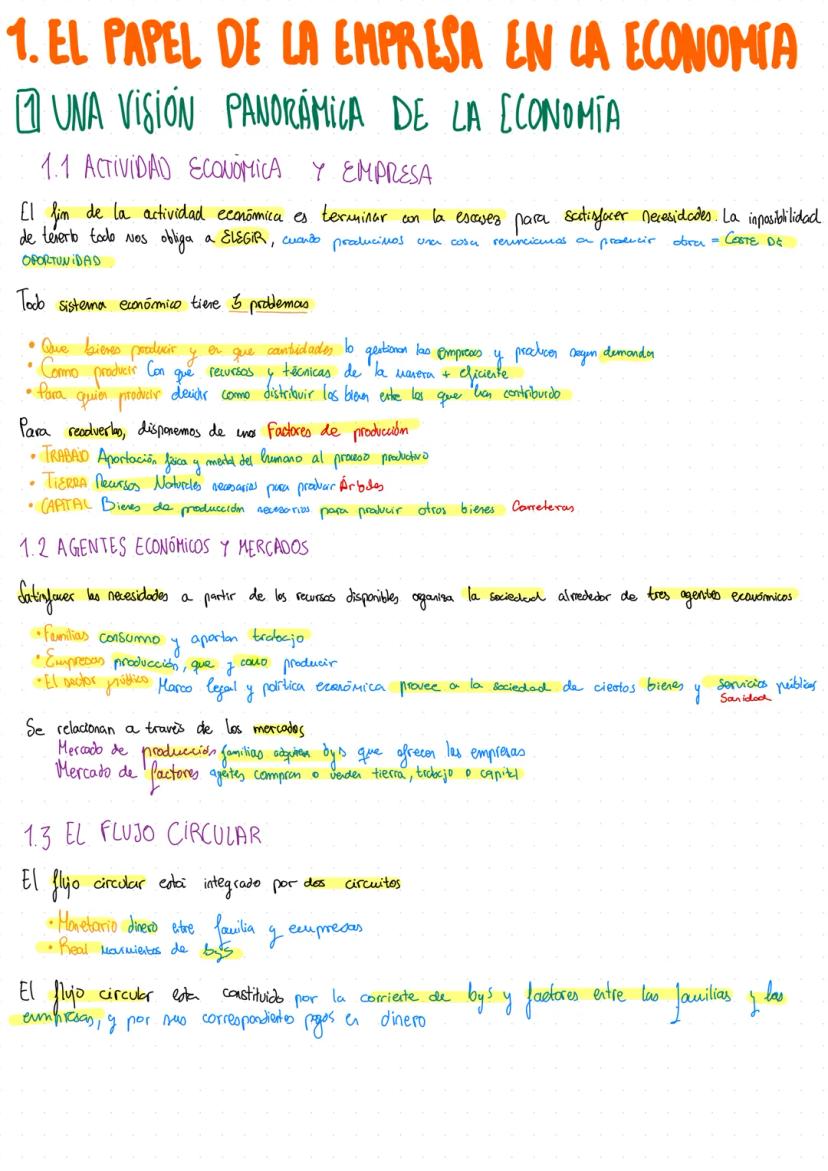 1. EL PAPEL DE LA EMPRESA EN LA ECONOMÍA
1 UNA VISIÓN PANORÁMICA DE LA ECONOMÍA
1.1 ACTIVIDAD ECONÓMICA Y EMPRESA
El fin de la actividad económica es terminar con la escasez para satisfacer necesidades. La imposibilidad
de tenerlo todo nos obliga a ELEGIR, cuando producimos una cosa renunciamos a producir otra = COSTE DE
OPORTUNIDAD
Todo sistema económico tiene 3 problemas
• Que bienes producir y en que cantidades lo gestionan las empresas y producen segun demandan
• Como producir Con que recursos y técnicas de la manera + eficiente
• Para quien producir decidir como distribuir los bienes entre los que han contribuido
Para resolverlos, disponemos de unos Factores de producción
• TRABAJO Aportación física y mental del humano al proceso productivo
• TIERRA Recursos Naturales necesarios para producir Árboles
• CAPITAL Bienes de producción necesarios para producir otros bienes Carreteras
1.2 AGENTES ECONÓMICOS Y MERCADOS
Satisfacer las necesidades a partir de los recursos disponibles organiza la sociedad alrededor de tres agentes económicos
• Familias consumno y aportan trabajo
• Empresas producción, que y como producir
• El sector público Marco legal y política económica provee a la sociedad de ciertos bienes y servicios públicos
Sanidad
Se relacionan a través de los mercados
Mercado de producción familias adquieren bys que ofrecen las empresas
Mercado de factores agentes compran o venden tierra, trabajo o capital
1.3 EL FLUJO CIRCULAR
El flujo circular está integrado por dos circuitos
• Monetario dinero entre familia y empresas
• Real movimientos de bys
El flujo circular esta constituido por la corriente de bys y factores entre las familias y las
empresas, y por sus correspondientes pagos en dinero